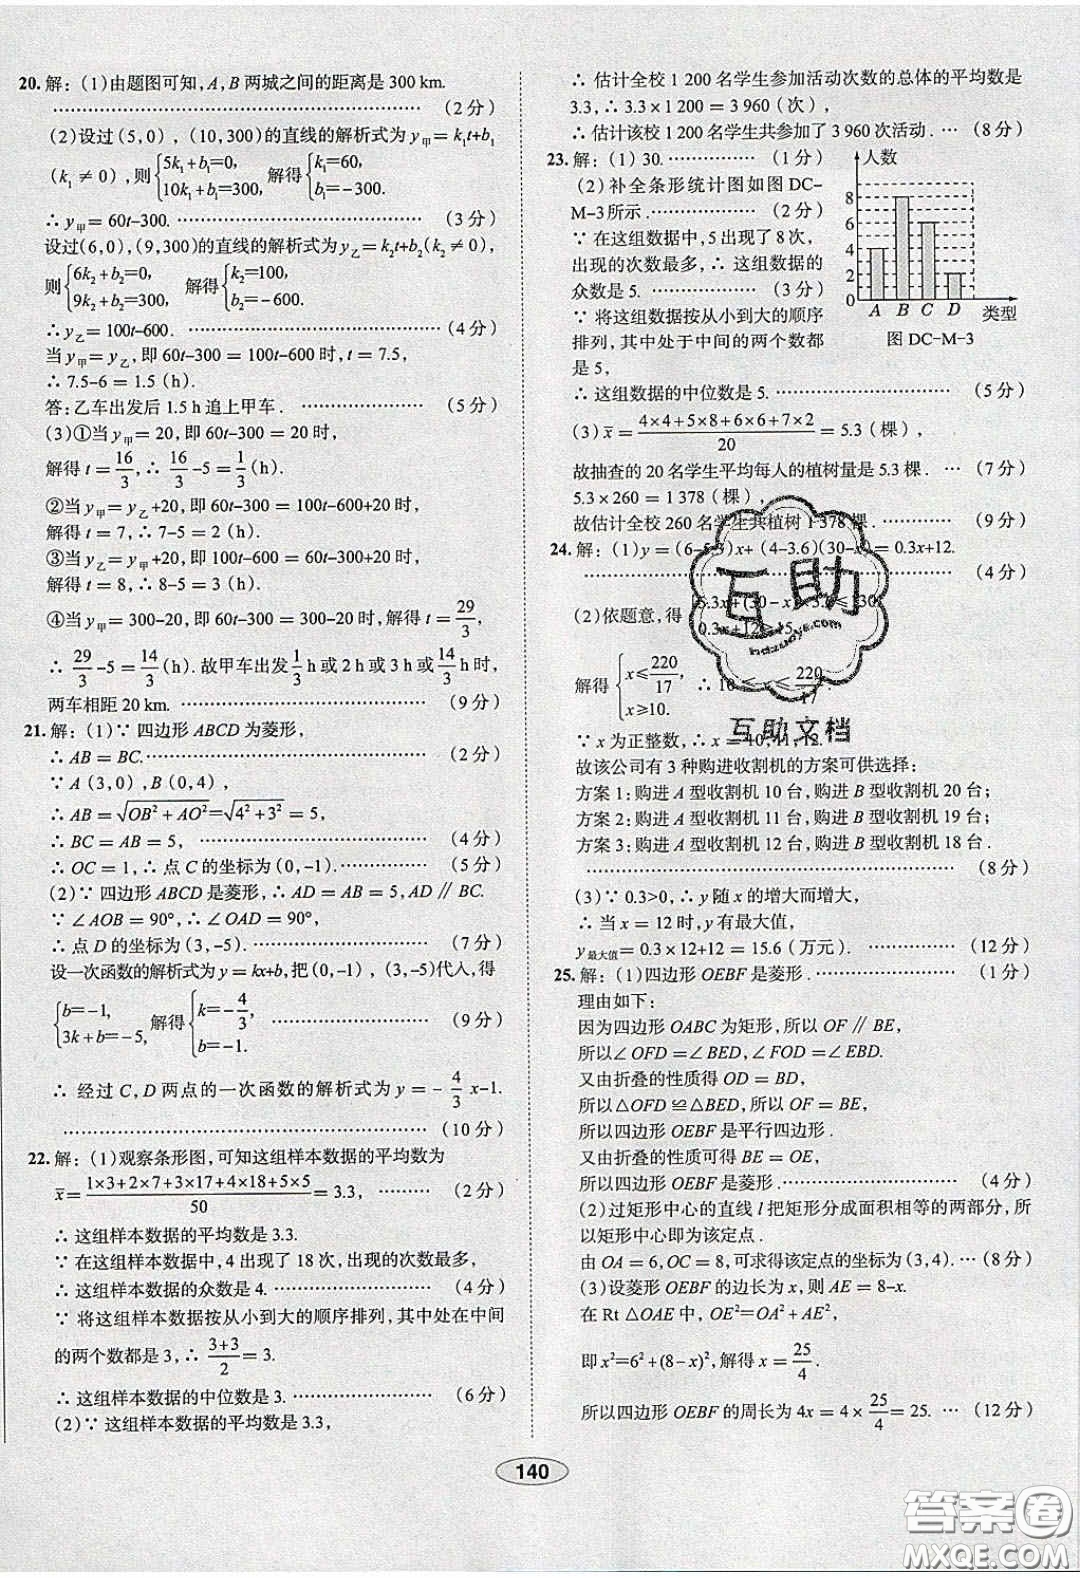 20. 解：(1)由题图可知，A，B 两城之间的距离是 300 km.
…… (2 分)
(2)设过(5,0)，(10,300)的直线的解析式为 y甲＝k₁t+b₁
(k₁≠0)，则{5k₁+b₁=0, 10k₁+b₁=300, 解得{k₁=60, b₁=－300.
∴ y甲＝60t－300. …… (3 分)
设过(6,0)，(9,300)的直线的解析式为 y乙＝k₂t+b₂(k₂≠0)，
则{6k₂+b₂=0, 9k₂+b₂=300, 解得{k₂=100, b₂=－600.
∴ y乙＝100t－600. …… (4 分)
当 y甲＝y乙，即 60t－300＝100t－600 时，t＝7.5，
∴ 7.5－6＝1.5 (h).
答：乙车出发后 1.5 h 追上甲车. …… (5 分)
(3)①当 y甲＝20，即 60t－300＝20 时，
解得 t＝16/3，∴ 16/3－5＝1/3 (h).
②当 y甲＝y乙+20，即 60t－300＝100t－600+20 时，
解得 t＝7，∴ 7－5＝2 (h).
③当 y乙＝y甲+20，即 60t－300+20＝100t－600 时，
解得 t＝8，∴ 8－5＝3 (h).
④当 y甲＝300－20，即 60t－300＝300－20 时，解得 t＝29/3，
∴ 29/3－5＝14/3 (h). 故甲车出发 1/3 h 或 2 h 或 3 h 或 14/3 h 时，
两车相距 20 km. …… (9 分)
21. 解：(1)∵ 四边形 ABCD 为菱形，
∴ AB＝BC. …… (2 分)
∵ A (3,0)，B(0,4)，
∴ AB＝√(OB²+AO²)＝√(4²+3²)＝5，
∴ BC＝AB＝5， …… (4 分)
∴ OC＝1，∴ 点 C 的坐标为(0,－1). …… (5 分)
(2)∵ 四边形 ABCD 是菱形，∴ AD＝AB＝5，AD∥BC.
∵ ∠AOB＝90°，∴ ∠OAD＝90°，
∴ 点 D 的坐标为(3,－5). …… (7 分)
设一次函数的解析式为 y＝kx+b，把(0,－1)，(3,－5)代入，得
{b=－1, 3k+b=－5, 解得{k=－4/3, b=－1. …… (9 分)
∴ 经过 C，D 两点的一次函数的解析式为 y＝－4/3 x－1.
…… (10 分)
22. 解：(1)观察条形图，可知这组样本数据的平均数为
x̄＝(1×3+2×7+3×17+4×18+5×5)/50＝3.3， …… (2 分)
∴ 这组样本数据的平均数是 3.3.
∵ 在这组样本数据中，4 出现了 18 次，出现的次数最多，
∴ 这组样本数据的众数是 4. …… (4 分)
∵ 将这组样本数据按从小到大的顺序排列，其中处在中间
的两个数都是 3，∴ (3+3)/2＝3.
∴ 这组样本数据的中位数是 3. …… (6 分)
(2)∵ 这组样本数据的平均数是 3.3，
∴ 估计全校 1 200 名学生参加活动次数的总体的平均数是
3.3，∴ 3.3×1 200＝3 960 (次)，
∴ 估计该校 1 200 名学生共参加了 3 960 次活动. … (8 分)
23. 解：(1) 30. …… (1 分)
(2) 补全条形统计图如图 DC-
M-3所示. …… (2 分)
∵ 在这组数据中，5 出现了 8 次，
出现的次数最多，∴ 这组数据的
众数是 5. …… (3 分)
∵ 将这组数据按从小到大的顺序
排列，其中处于中间的两个数都
是 5，
人数
8
6
4
2
0
A B C D
类型
图 DC-M-3
∴ 这组数据的中位数是 5. …… (5 分)
(3) x̄＝(4×4+5×8+6×6+7×2)/20＝5.3 (棵)，
故抽查的 20 名学生平均每人的植树量是 5.3 棵. … (7 分)
5.3×260＝1 378 (棵)，
故估计全校 260 名学生共植树 1 378 棵. …… (9 分)
24. 解：(1)y＝(6－5.3)x+(4－3.6)(30－x)＝0.3x+12.
…… (4 分)
(2)依题意，得{5.3x+(30－x)×3.6≤130, 0.3x+12≥15.
解得{x≤220/17, x≥10. ∴ 10≤x≤220/17.
∵ x 为正整数，∴ x＝10，11，12.
故该公司有 3 种购进收割机的方案可供选择：
方案 1：购进 A 型收割机 10 台，购进 B 型收割机 20 台；
方案 2：购进 A 型收割机 11 台，购进 B 型收割机 19 台；
方案 3：购进 A 型收割机 12 台，购进 B 型收割机 18 台.
…… (8 分)
(3)∵ 0.3>0，∴ y 随 x 的增大而增大，
∴ 当 x＝12 时，y 有最大值，
y最大值＝0.3×12+12＝15.6 (万元). …… (12 分)
25. 解：(1)四边形 OEBF 是菱形. …… (1 分)
理由如下：
因为四边形 OABC 为矩形，所以 OF∥BE，
所以∠OFD＝∠BED，∠FOD＝∠EBD.
又由折叠的性质得 OD＝BD，
所以△OFD≌△BED，所以 OF＝BE，
所以四边形 OEBF 是平行四边形.
又由折叠的性质可得 BE＝OE，
所以四边形 OEBF 是菱形. …… (4 分)
(2)过矩形中心的直线 l 把矩形分成面积相等的两部分，所
以矩形中心即为该定点.
由 OA＝6，OC＝8，可求得该定点的坐标为(3,4). … (8 分)
(3)设菱形 OEBF 的边长为 x，则 AE＝8－x.
在 Rt△OAE 中，OE²＝OA²+AE²，
即 x²＝6²+(8－x)²，解得 x＝25/4.
所以四边形 OEBF 的周长为 4x＝4×25/4＝25. … (12 分)
140
互助
hdzuoye.com
互助文档
答案圈
MXQE.COM